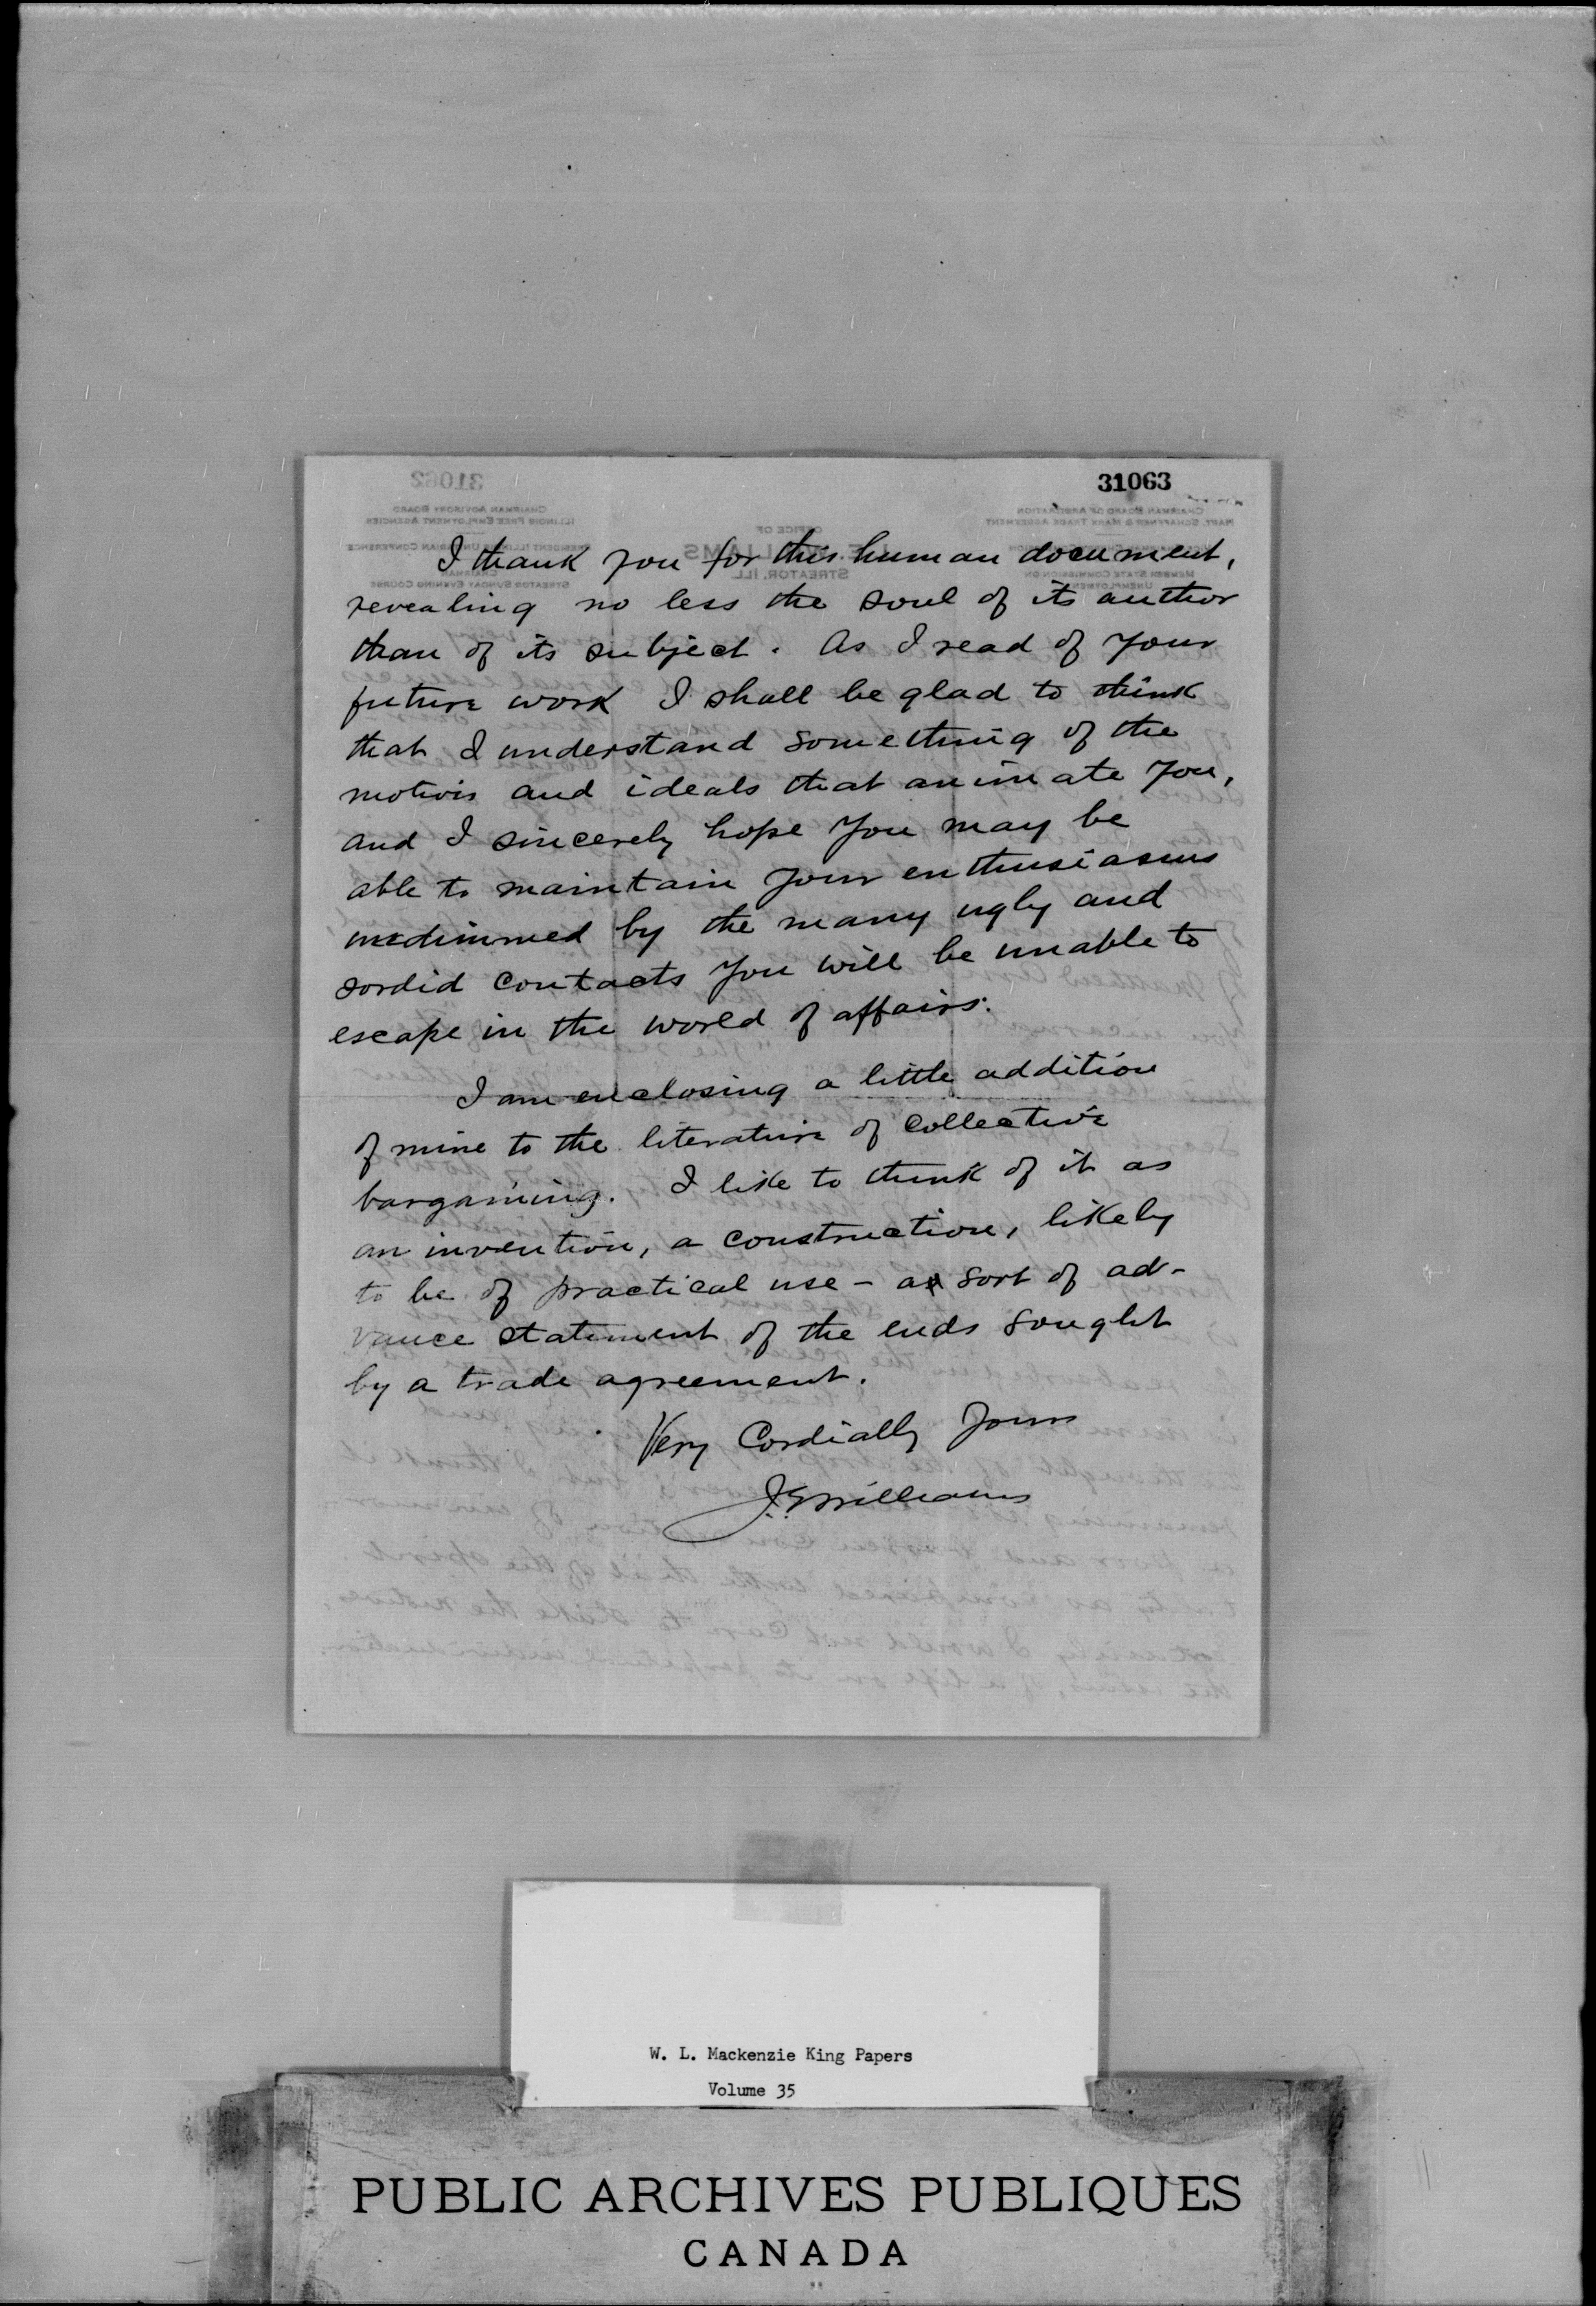 31063
I thank you for this human document,
revealing no less the soul of its author
than of its subject. As I read of your
future work I shall be glad to think
that I understand something of the
motives and ideals that animate you,
and I sincerely hope you may be
able to maintain your enthusiasms
undimmed by the many ugly and
sordid contacts you will be unable to
escape in the world of affairs.
I am enclosing a little addition
of mine to the literature of collective
bargaining. I like to think of it as
an invention, a construction, likely
to be of practical use - a sort of ad-
vance statement of the ends sought
by a trade agreement.
Very Cordially Yours
J.E. Williams
W. L. Mackenzie King Papers
Volume 35
PUBLIC ARCHIVES PUBLIQUES
CANADA